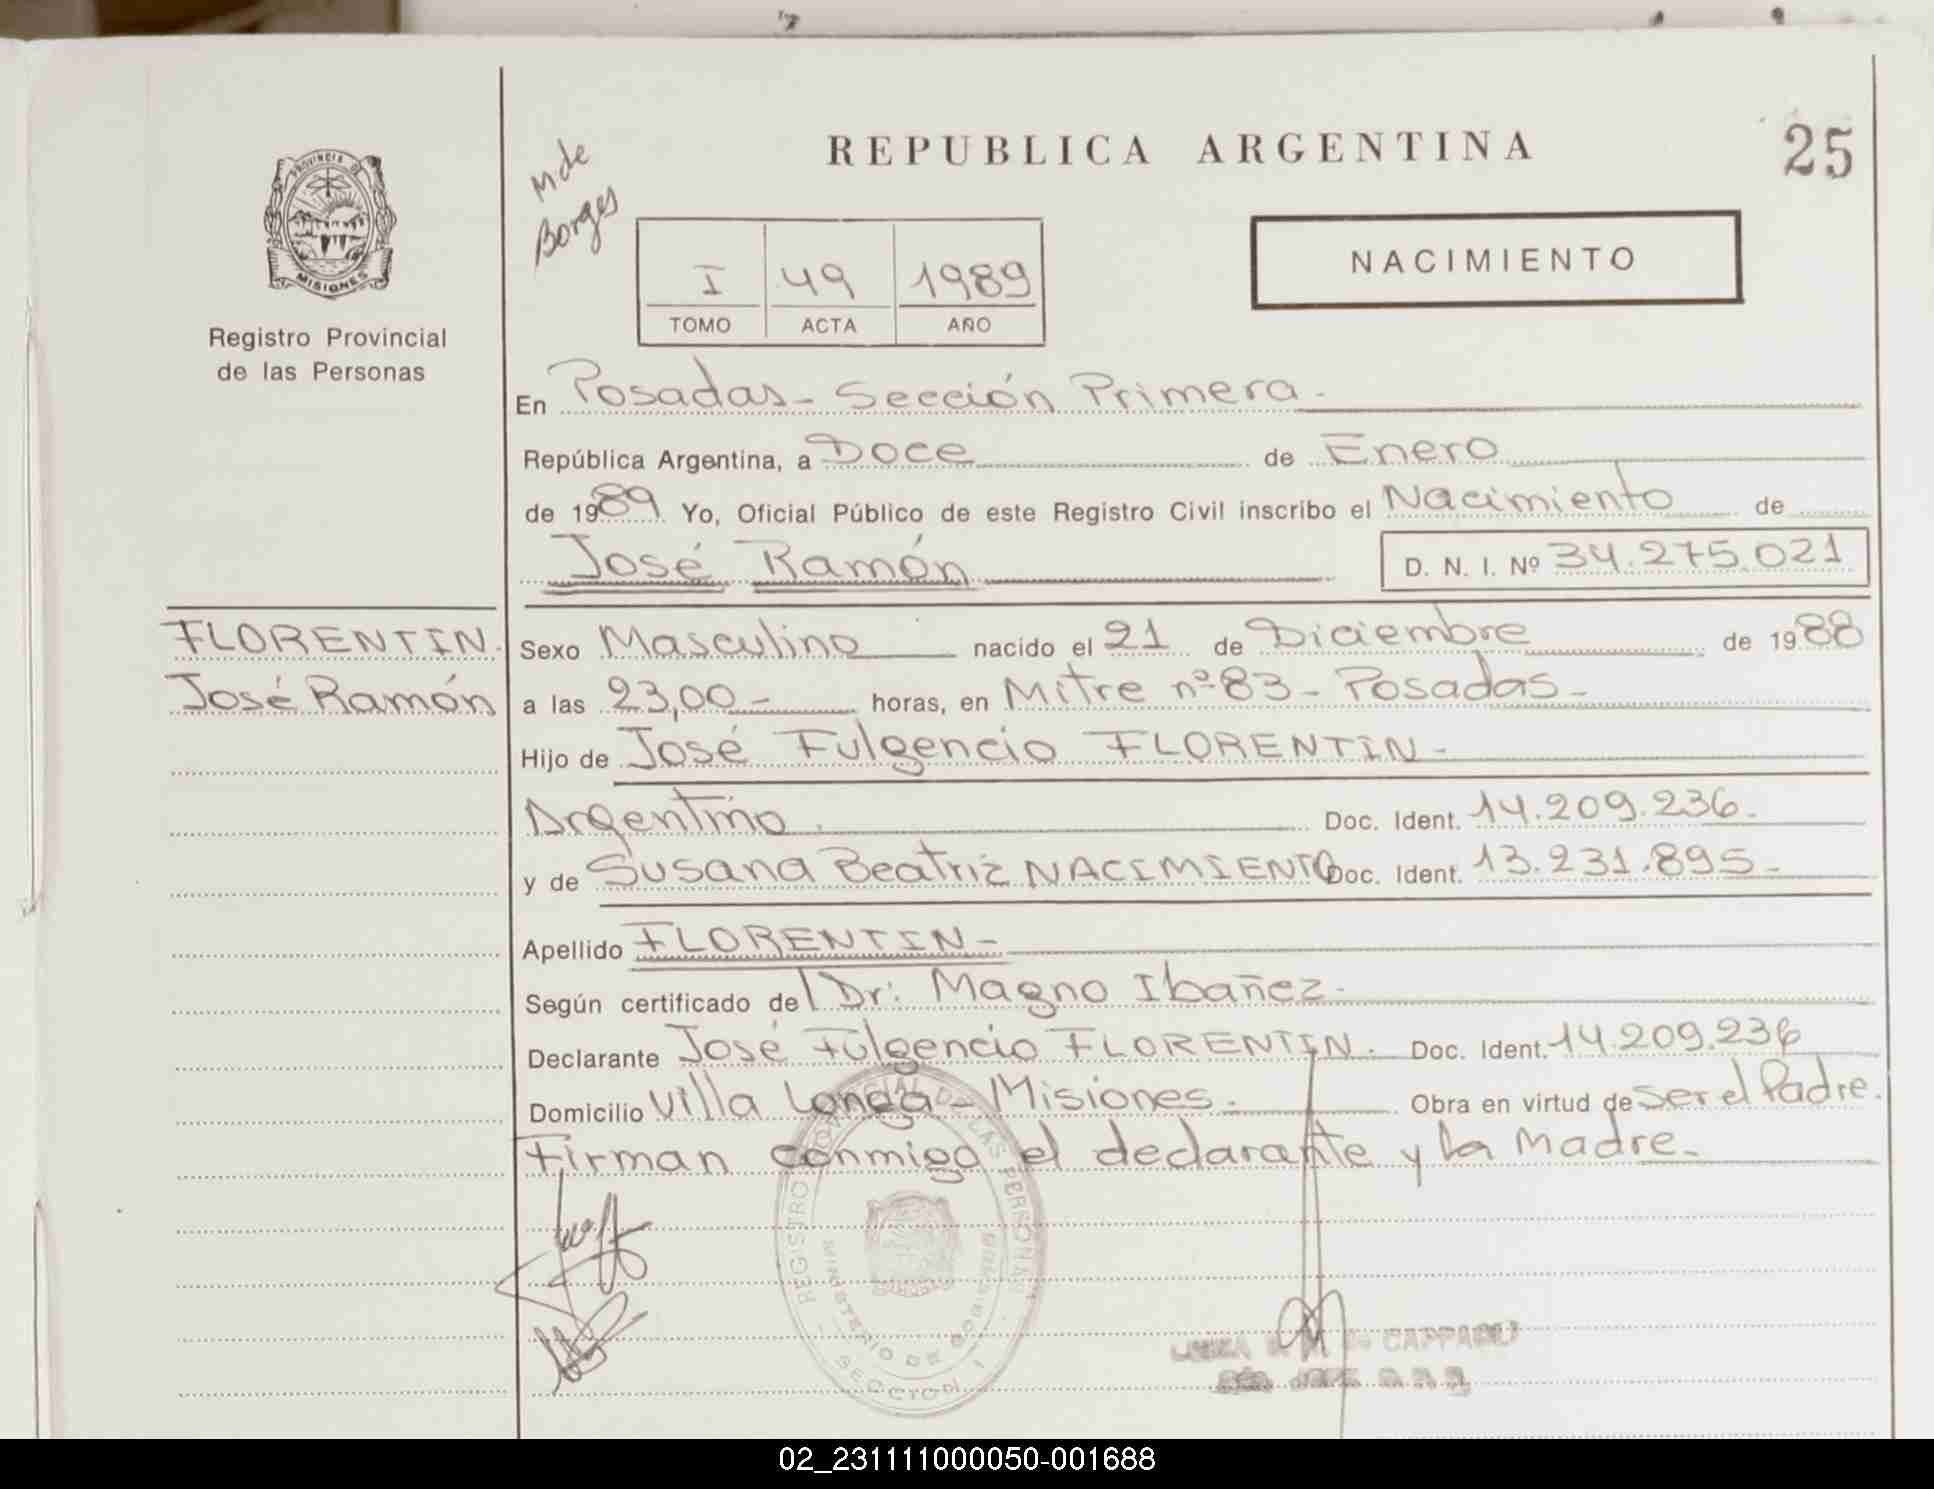 REPUBLICA ARGENTINA
25
PROVINCIA DE
MISIONES
Registro Provincial
de las Personas
M de
Borges
I 49 1989
TOMO ACTA AÑO
NACIMIENTO
En Posadas - Sección Primera -
República Argentina, a Doce de Enero
de 1989 Yo, Oficial Público de este Registro Civil inscribo el Nacimiento de
José Ramón D. N. I. Nº 34.275.021
FLORENTIN.
José Ramón
Sexo Masculino nacido el 21 de Diciembre de 1988
a las 23,00 - horas, en Mitre nº 83 - Posadas -
Hijo de José Fulgencio FLORENTIN -
Argentino . Doc. Ident. 14.209.236.
y de Susana Beatriz NACIMIENTO Doc. Ident. 13.231.895 -
Apellido FLORENTIN -
Según certificado del Dr. Magno Ibañez.
Declarante José Fulgencio FLORENTIN. Doc. Ident. 14.209.236
Domicilio Villa Longa - Misiones. Obra en virtud de ser el Padre.
Firman conmigo el declarante y la Madre.
REGISTRO PROVINCIAL DE LAS PERSONAS
MINISTERIO DE GOBIERNO
SECCION I
CAPPAGLI
02_231111000050-001688